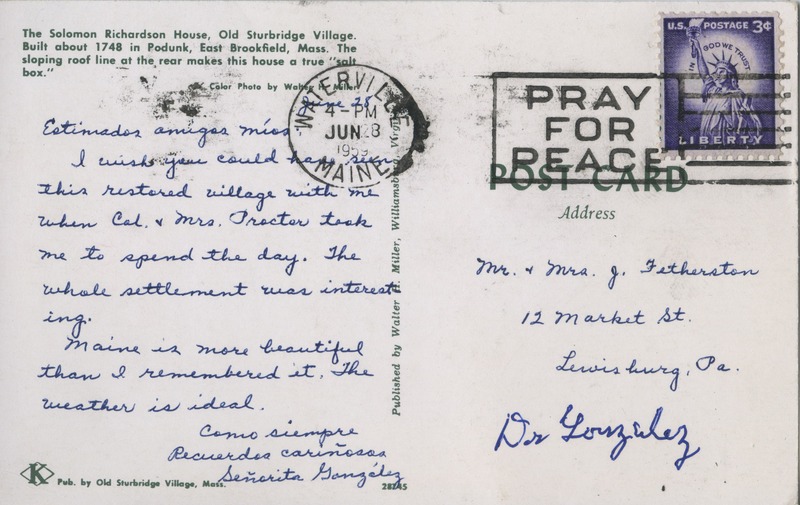 The Solomon Richardson House, Old Sturbridge Village.
Built about 1748 in Podunk, East Brookfield, Mass. The
sloping roof line at the rear makes this house a true "salt
box."
Color Photo by Walter H. Miller
June 28,
Estimados amigos míos
I wish you could have seen
this restored village with me
when Col. & Mrs. Proctor took
me to spend the day. The
whole settlement was interest-
ing.
Maine is more beautiful
than I remembered it. The
weather is ideal.
Como siempre
Recuerdos cariñosos
Señorita González
K
Pub. by Old Sturbridge Village, Mass.
28245
Published by Walter H. Miller, Williamsburg, Virginia
WATERVILLE
4-PM
JUN 28
1959
MAINE
PRAY
FOR
PEACE
U.S. POSTAGE 3¢
IN GOD WE TRUST
LIBERTY
POST CARD
Address
Mr. & Mrs. J. Fetherston
12 Market St.
Lewisburg, Pa.
Dr González